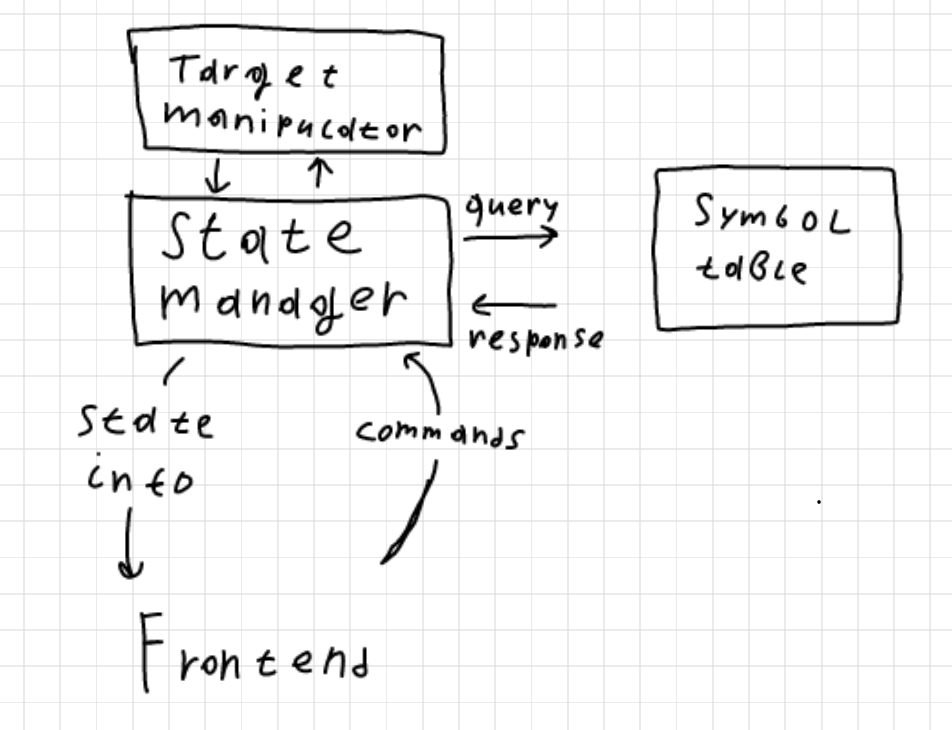 Target
manipulator
State
manager
query
response
Symbol
table
state
info
commands
Frontend